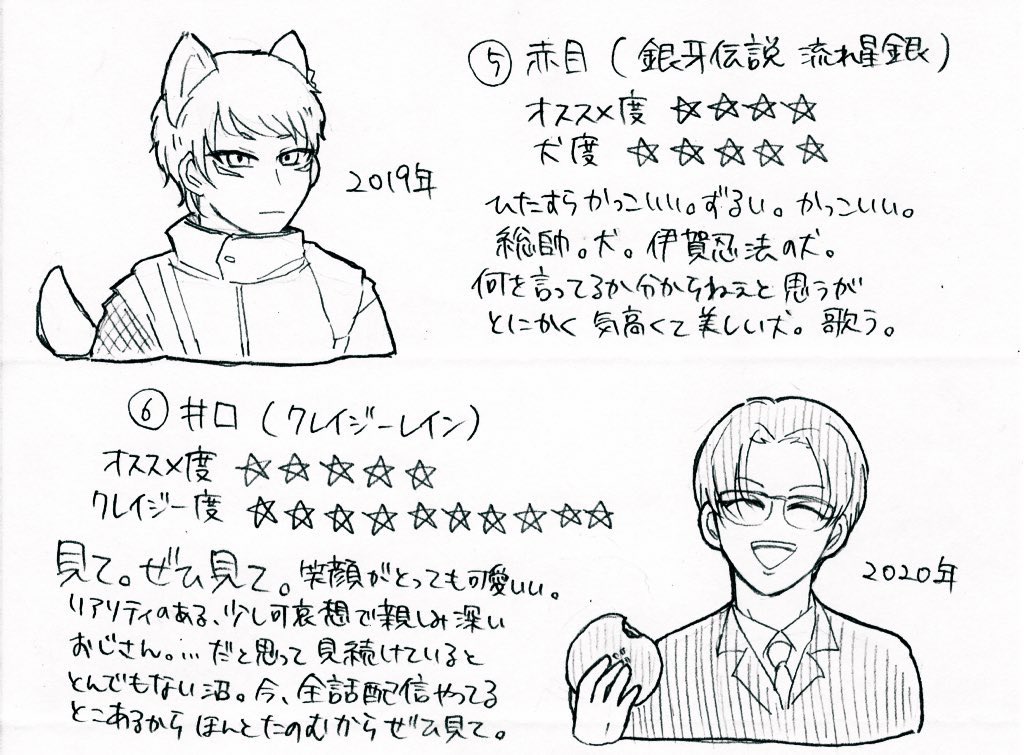 ⑤ 赤目（銀牙伝説 流れ星銀）
オススメ度 ☆☆☆☆
犬度 ☆☆☆☆☆
2019年
ひたすらかっこいい。ずるい。かっこいい。
総帥。犬。伊賀忍法の犬。
何を言ってるか分からねぇと思うが
とにかく気高くて美しい犬。歌う。
⑥ 井口（クレイジーレイン）
オススメ度 ☆☆☆☆☆
クレイジー度 ☆☆☆☆☆☆☆☆☆☆
見て。ぜひ見て。笑顔がとっても可愛いい。
リアリティのある、少し可哀想で親しみ深い
おじさん。…だと思って見続けていると
とんでもない沼。今、全話配信やってる
とこあるからほんとたのむからぜひ見て。
2020年